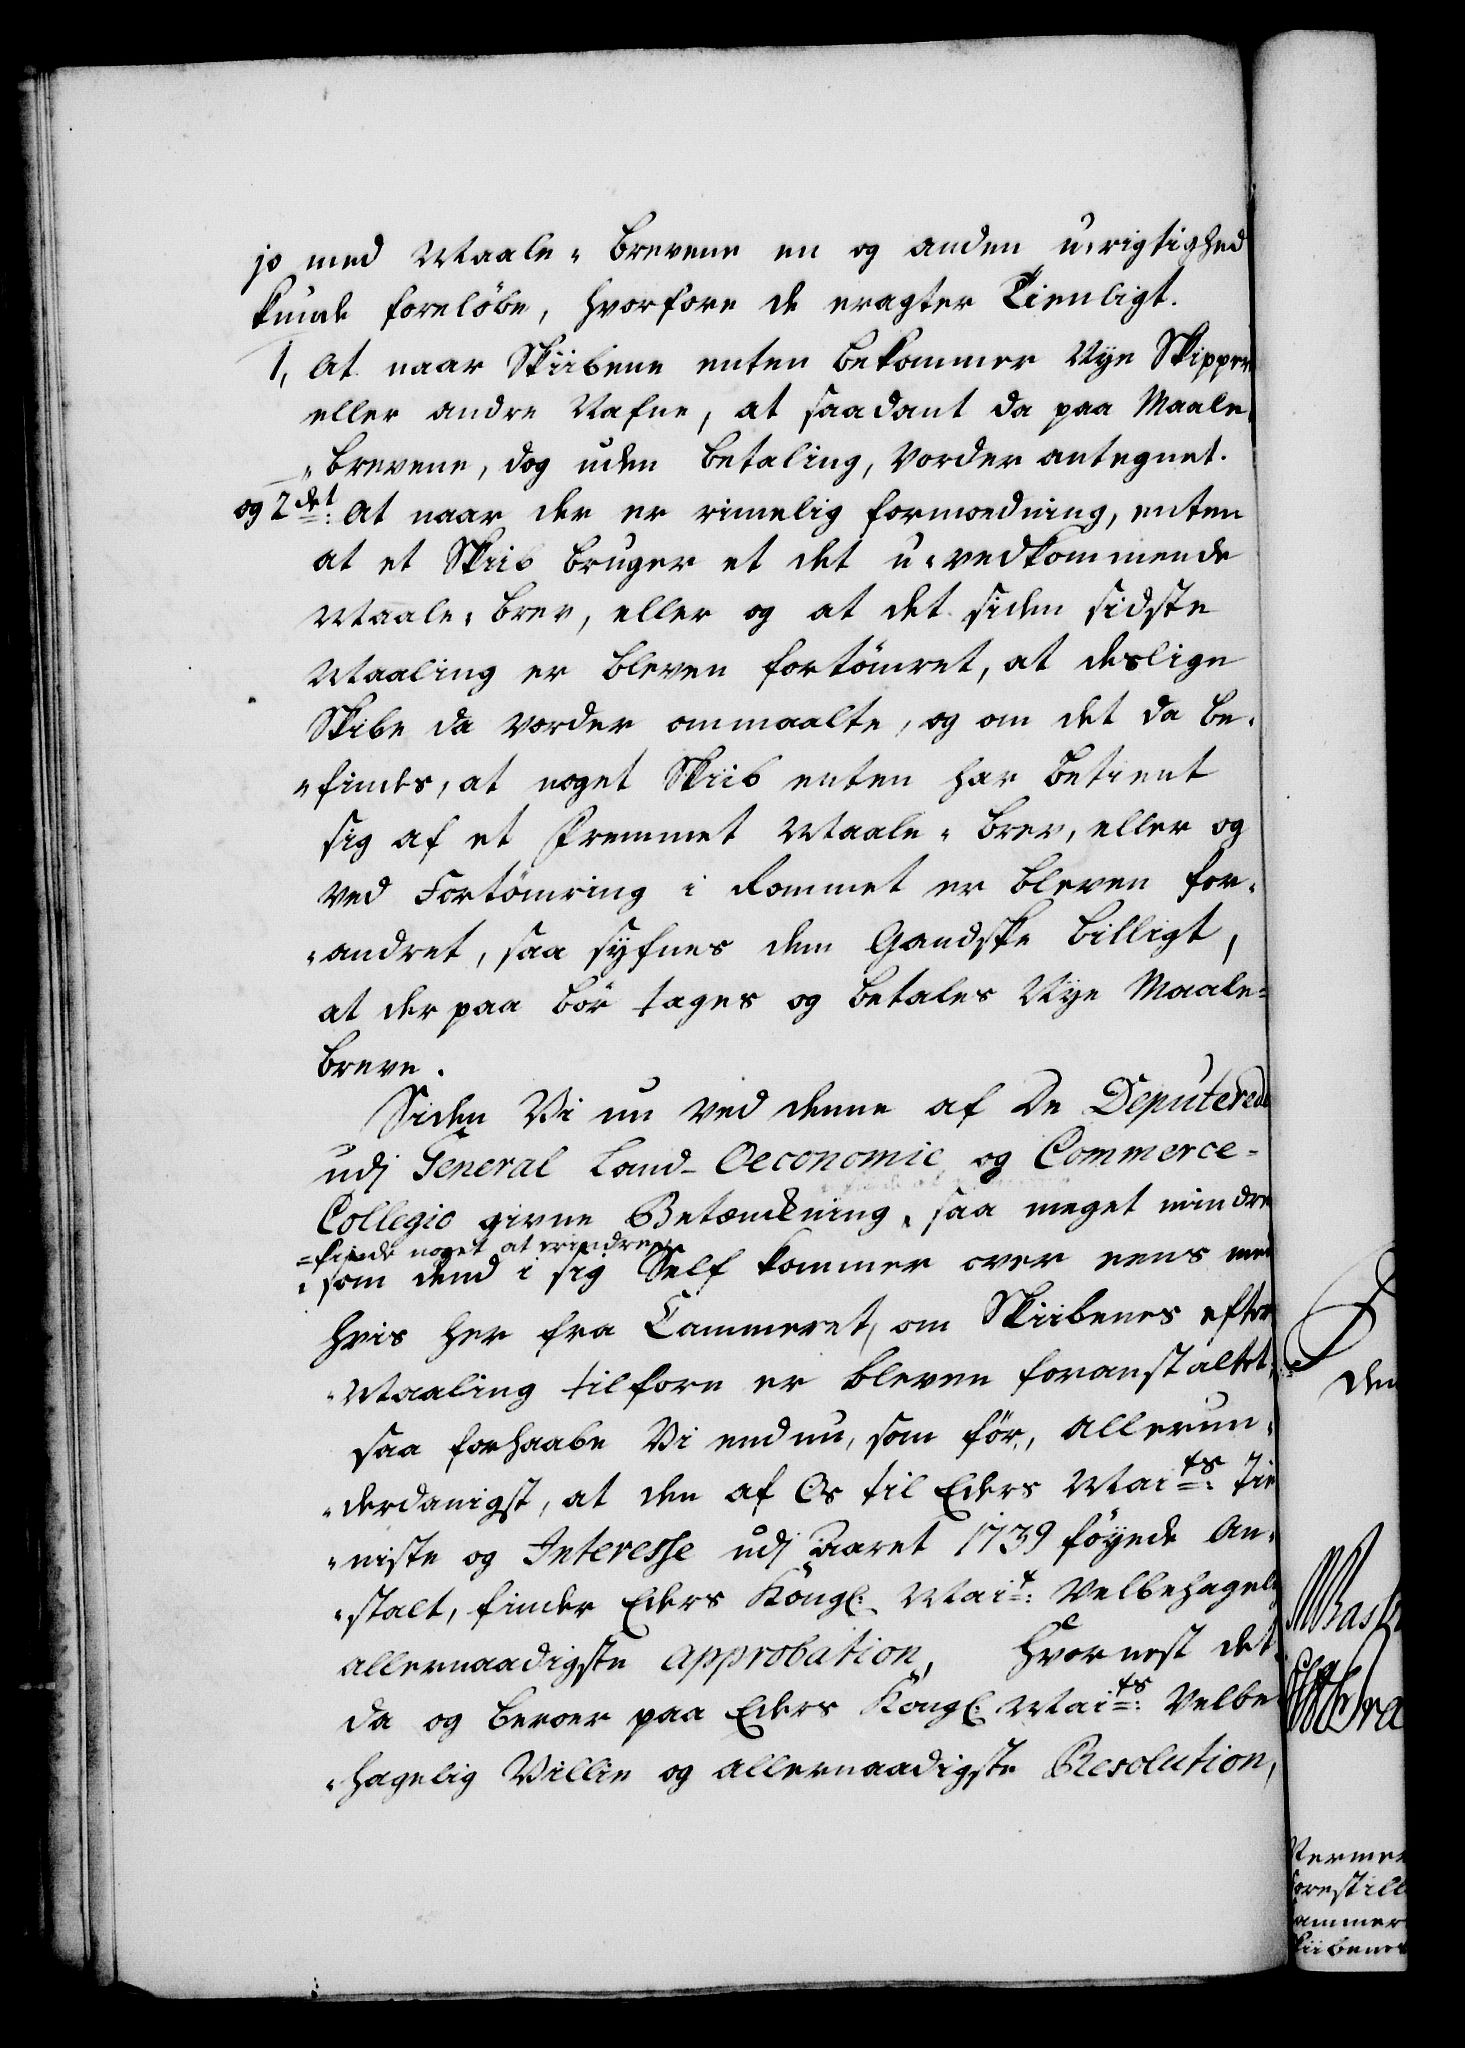 jo med Maale-Brevene en og anden u-rigtighed
kunde foreløbe, hvorfore de eragter Tienligt.
1, At naar Skiibene enten bekommer Nye Skippere
eller andre Nafne, at saadant da paa Maale-
-brevene, dog uden betaling, vorder antegnet.
og 2det: At naar der er rimelig formoedning, enten
at et Skiib bruger et det u-vedkommende
Maale-brev, eller og at det siden sidste
Maaling er bleven fortömret, at deslige
Skibe da vorder ommaalte, og om det da be-
-findes, at noget Skiib enten har betient
sig af et fremmet Maale-brev, eller og
ved Fortömring i Rommet er bleven for-
-andret, saa syfnes dem Gandske billigt,
at der paa bör tages og betales Nye Maale-
breve.
Siden Vi nu ved denne af De Deputerede
udj General Land-Oeconomie og Commerce-
Collegio givne Betænckning, saa meget mindre
=finde noget at erindre,
som dend i sig Self kommer over eens med
hvis her fra Cammeret, om Skiibenes efter
-Maaling tilforn er bleven foranstaltet,
saa forhaabe Vi endnu, som för, allerun-
-derdanigst, at den af Os til Eders Maits: Tie
-niste og Interesse udj Aaret 1739 föyede An-
-stalt, finder Eders Kongl: Mait: Velbehagelig
allernaadigste approbation, Hvornest det
da og beroer paa Eders Kongl: Maits: Velbe-
-hagelig Villie og allernaadigste Resolution,
den